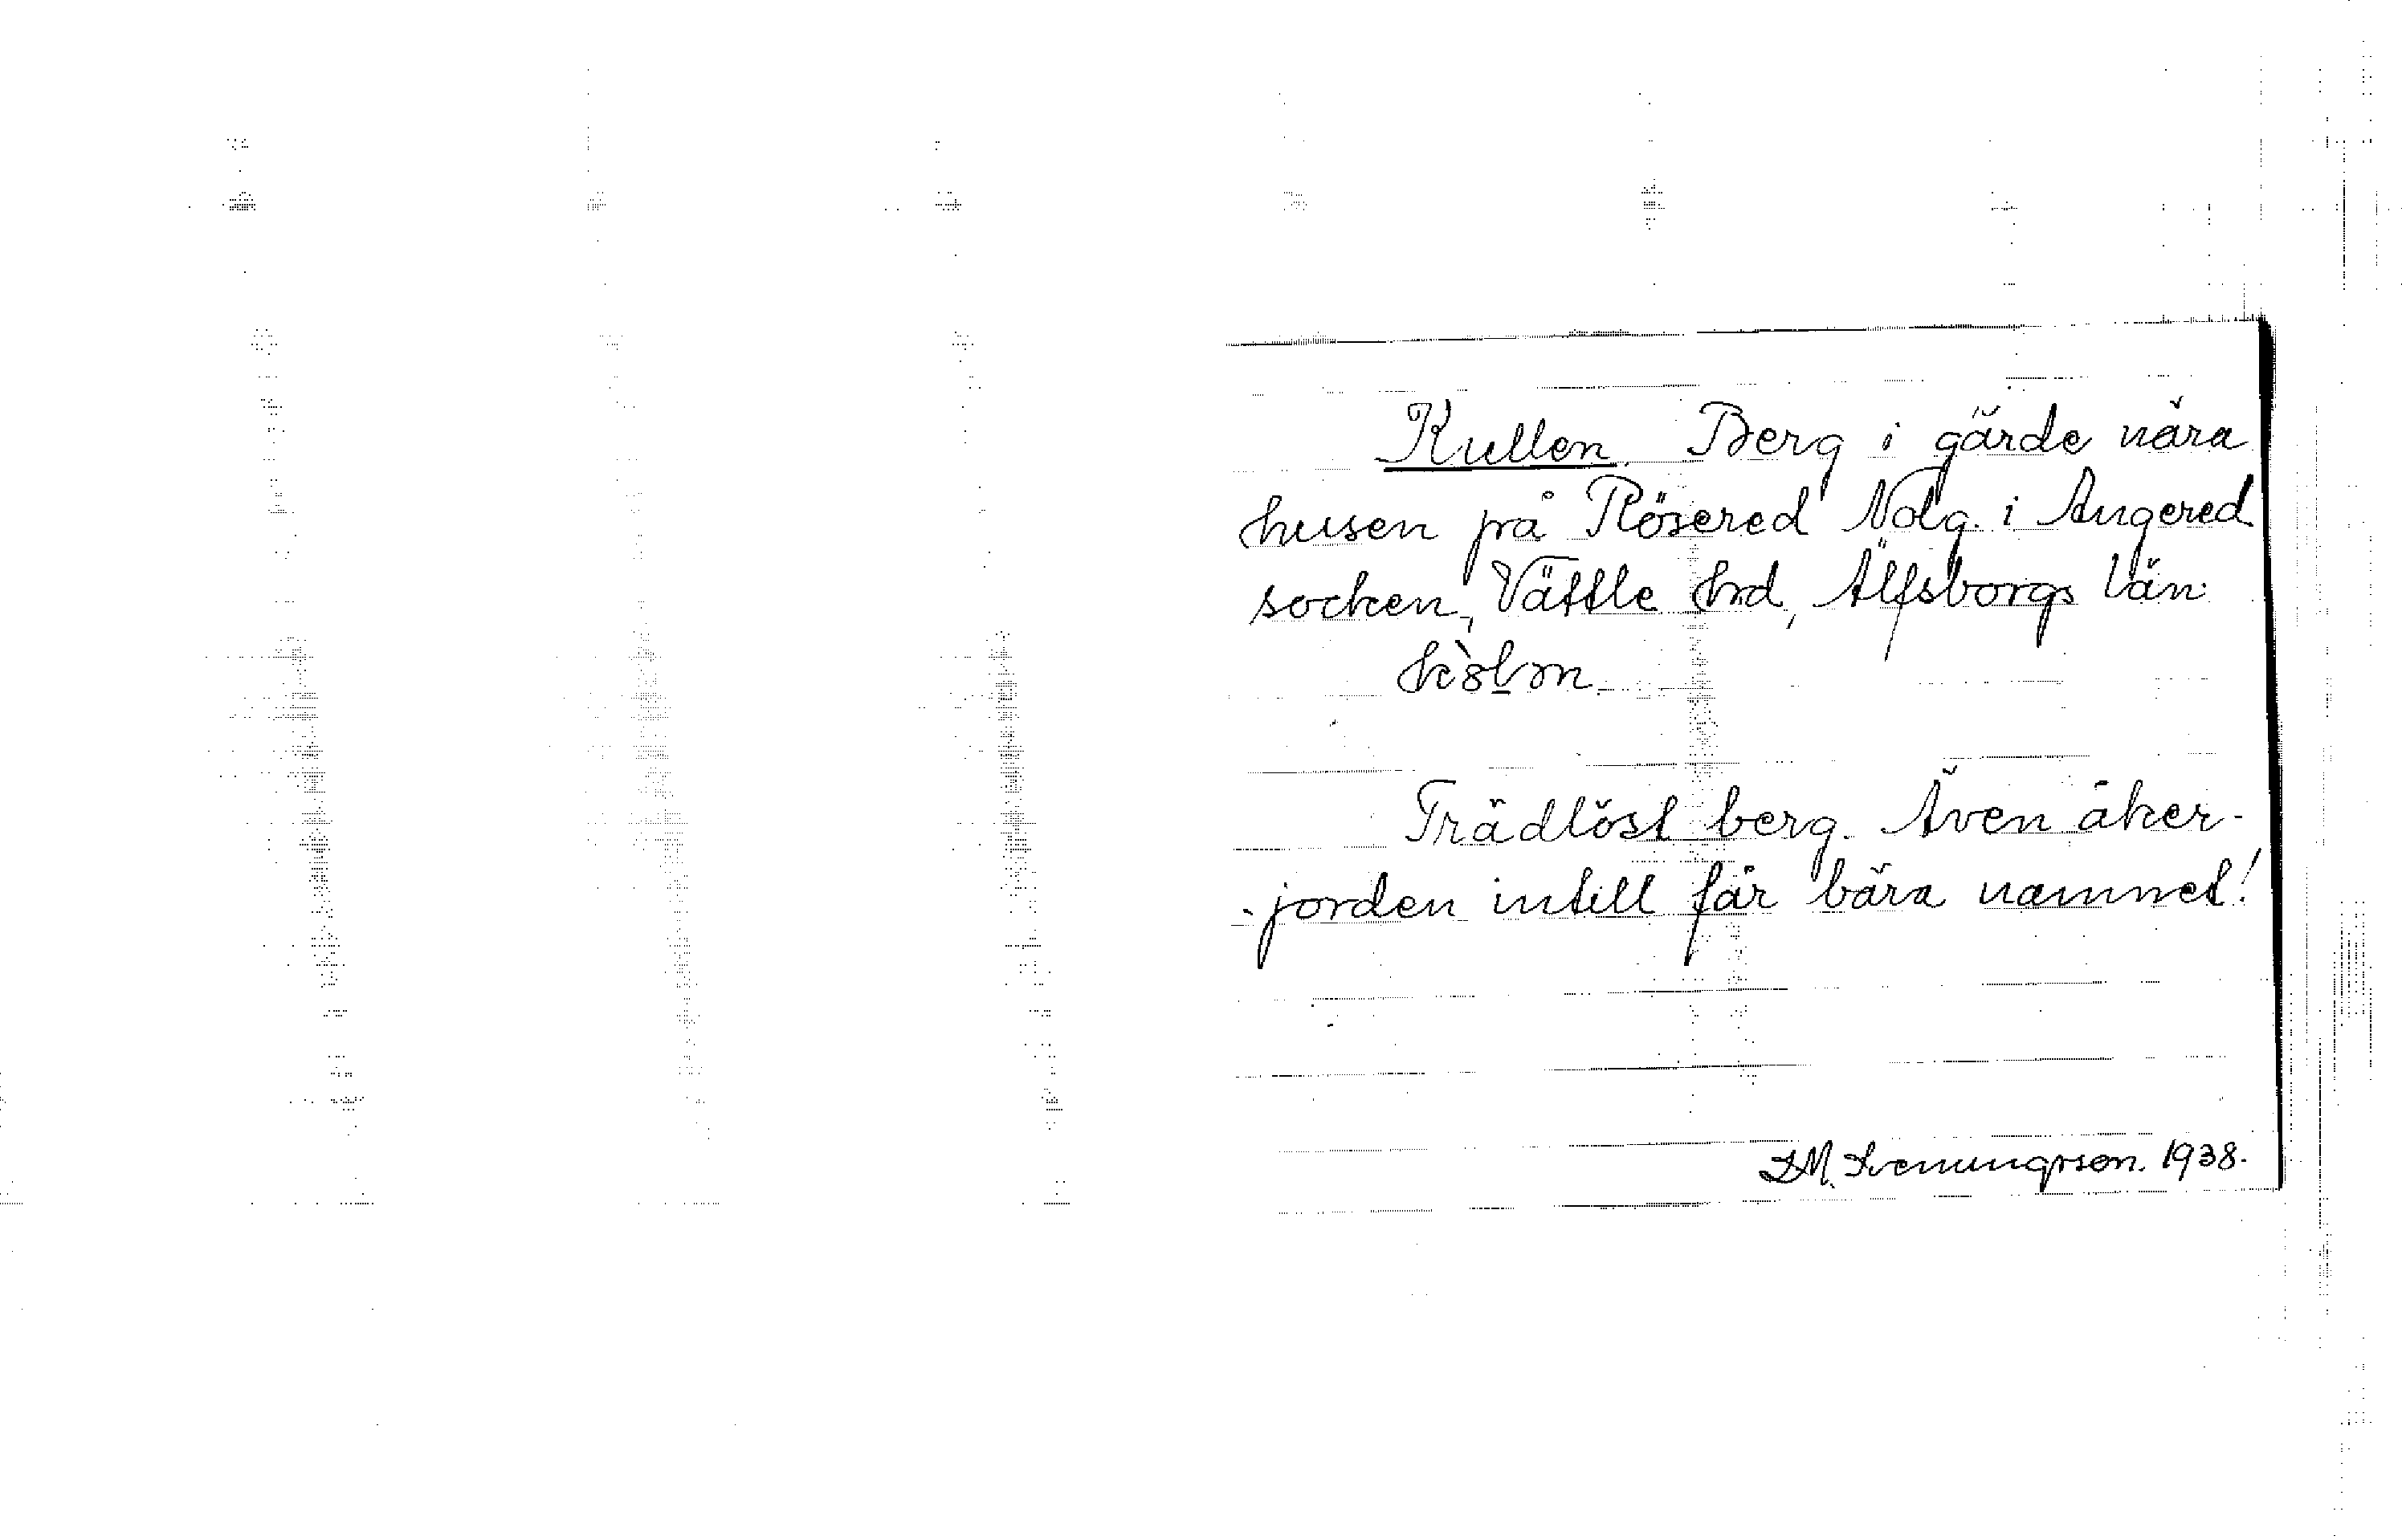 Kullen. Berg i gärde nära
husen på Rösered Nolg. i Angered
socken, Vättle hd, Älfsborgs län.
Trädlöst berg. Även åker-
-jorden intill får bära namnet!
1938.